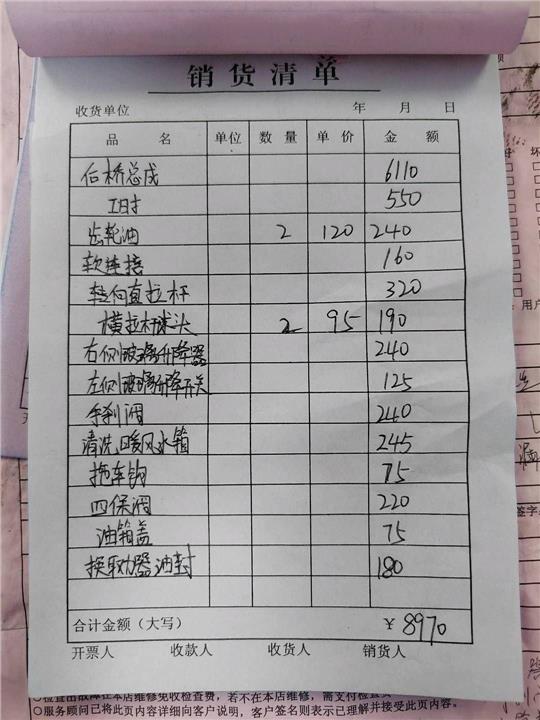 销货清单
收货单位 年 月 日
品 名 单位 数 量 单 价 金 额
后桥总成 6110
工时 550
齿轮油 2 120 240
软连接 160
转向直拉杆 320
横拉杆球头 2 95 190
右侧玻璃升降器 240
左侧玻璃升降开关 125
手刹阀 240
清洗暖风水箱 245
拖车钩 75
四保阀 220
油箱盖 75
换取力器油封 180
合计金额（大写） ￥8970
开票人 收款人 收货人 销货人
〇检查出故障在本店维修免收检查费，若不在本店维修，需支付检查费
〇服务顾问已将此页内容详细向客户说明，客户签名则表示已理解并接受此页内容。